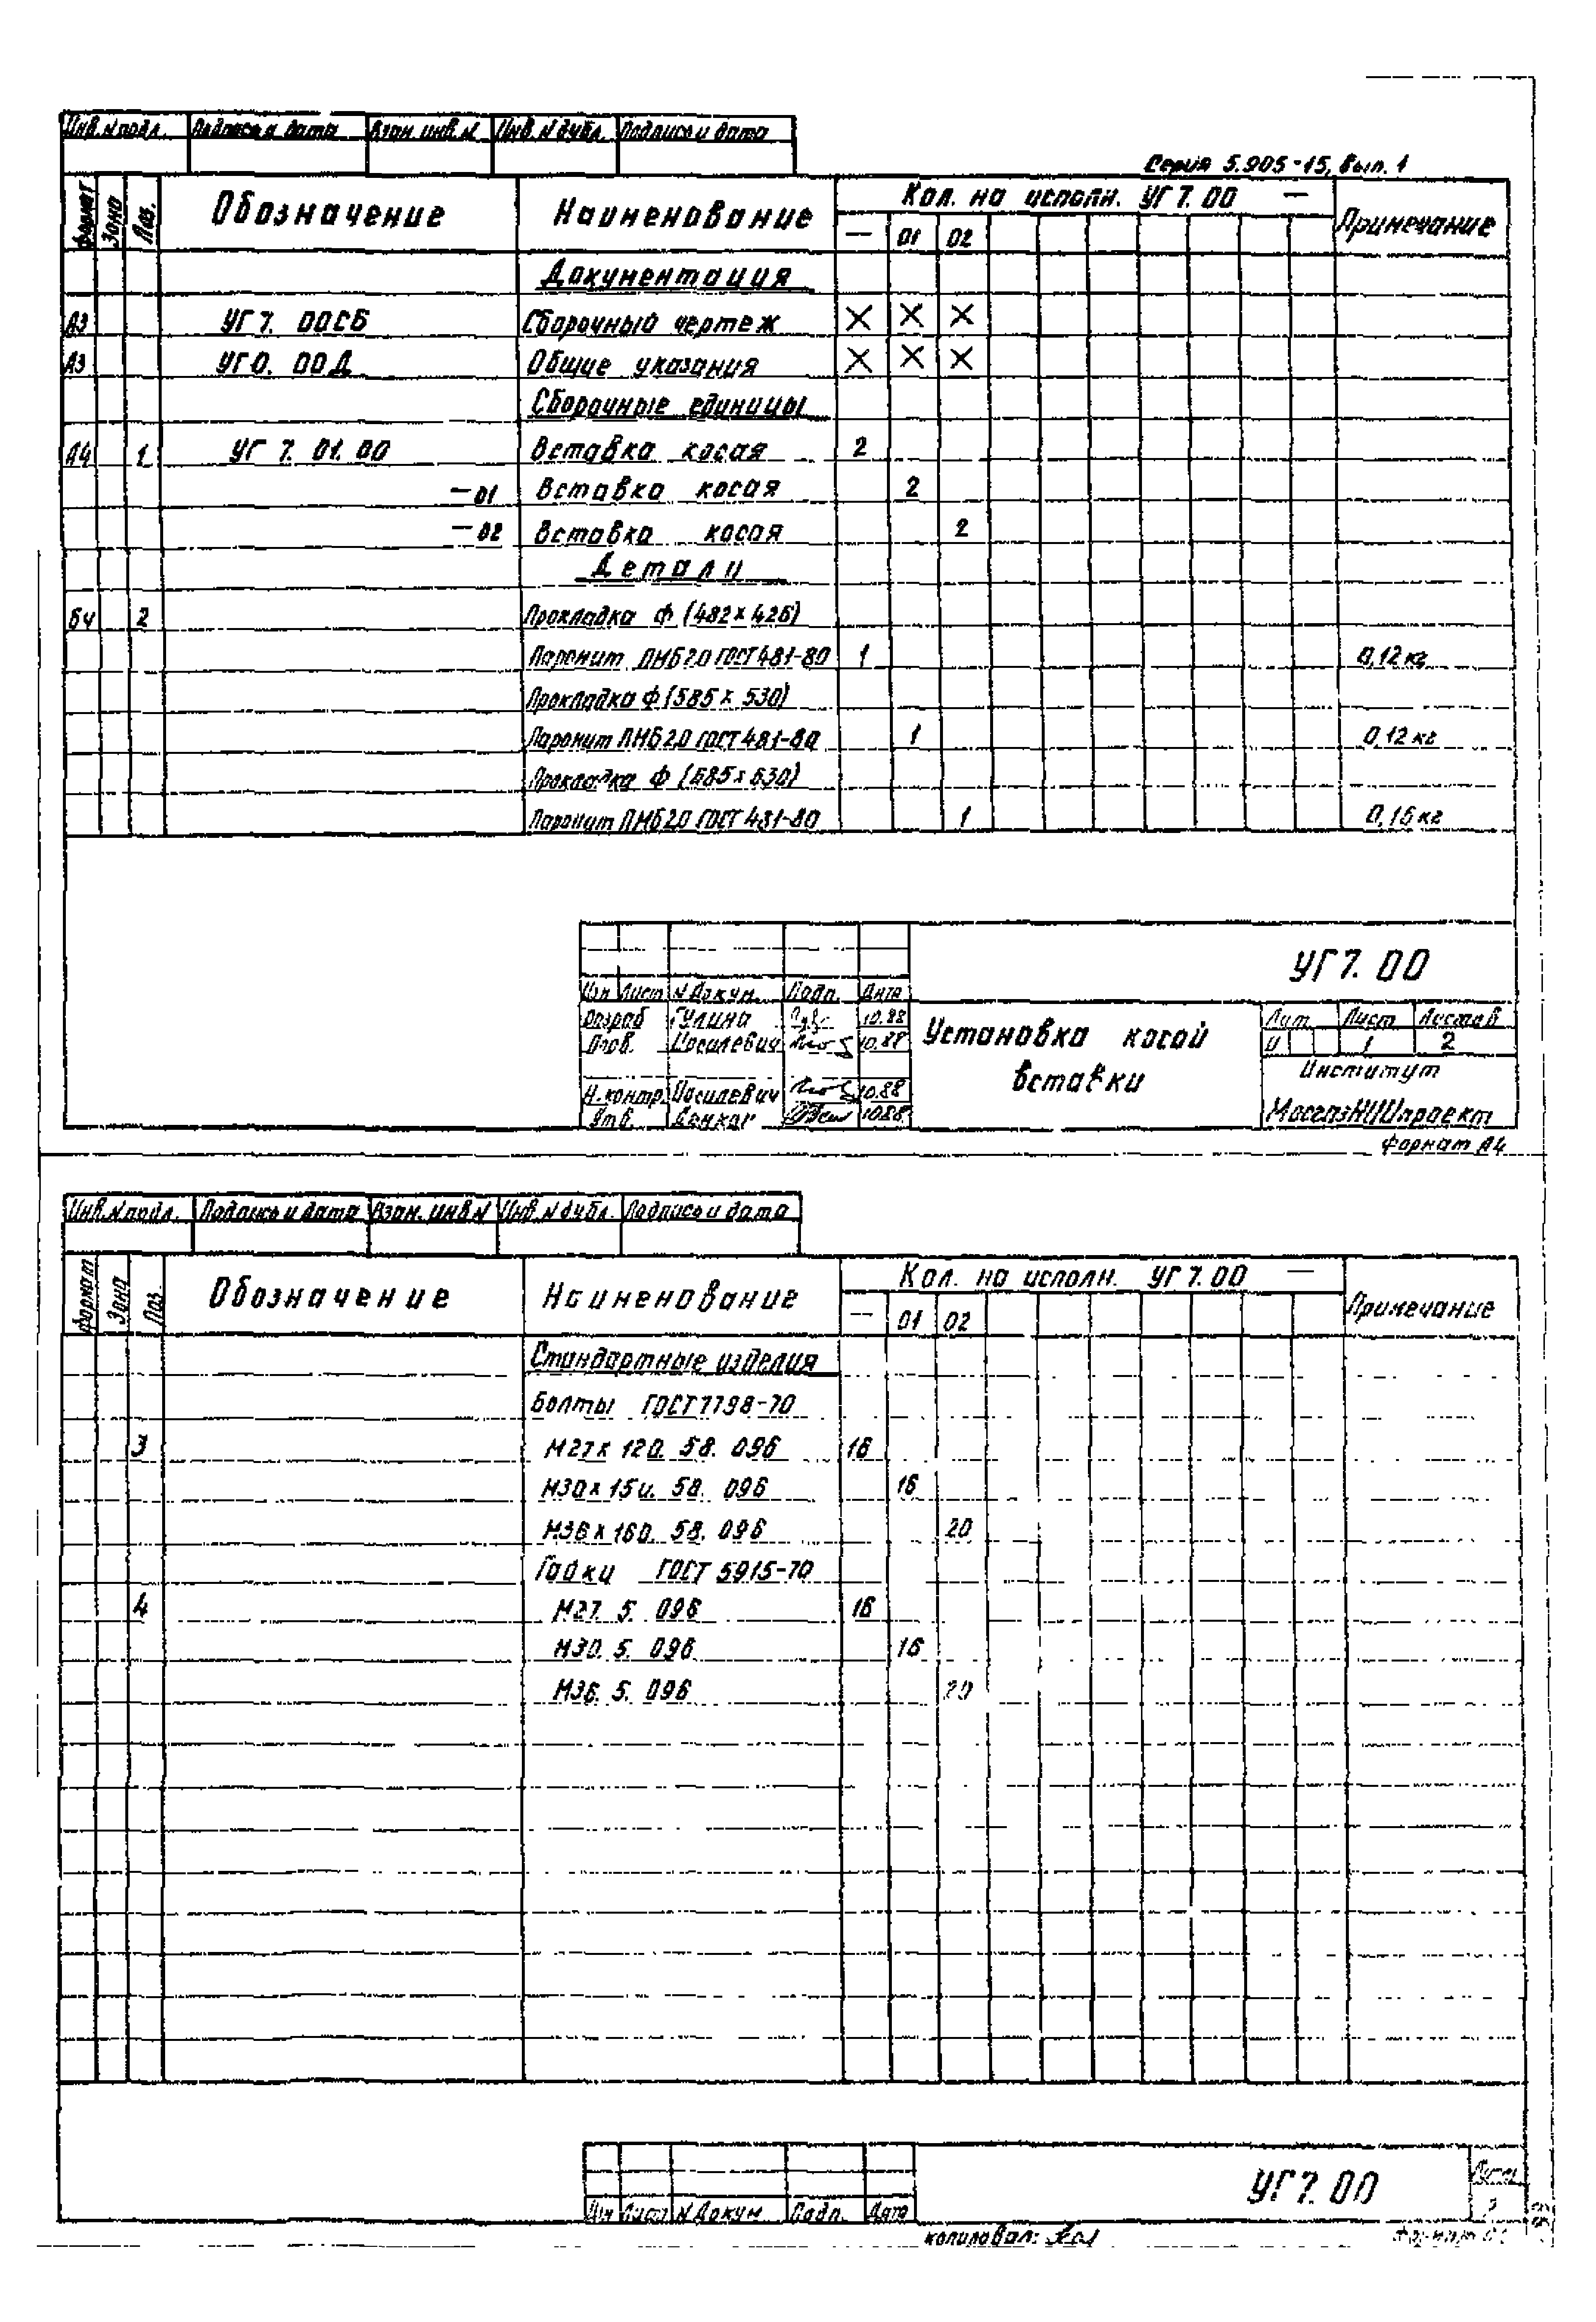 Инв.№подл. Подпись и дата Взам. инв.№ Инв.№дубл. Подпись и дата
Серия 5.905-15, вып. 1
Формат Зона Поз. Обозначение Наименование Кол. на исполн. УГ 7.00 — Примечание
— 01 02
Документация
А3 УГ 7. 00СБ Сборочный чертеж X X X
А3 УГ0. 00Д Общие указания X X X
Сборочные единицы
А4 1 УГ 7. 01. 00 Вставка косая 2
—01 Вставка косая 2
—02 Вставка косая 2
Детали
БЧ 2 Прокладка Ф (482×426)
Паронит ПМБ2.0 ГОСТ481-80 1 0,12кг
Прокладка Ф(585× 530)
Паронит ПМБ2.0 ГОСТ481-80 1 0,12кг
Прокладка Ф (685×630)
Паронит ПМБ2.0 ГОСТ481-80 1 0,16кг
УГ7. 00
Изм Лист №Докум. Подп. Дата
Разраб Гулина 10.88
Пров. Иоселевич 10.88
Н.контр. Иоселевич 10.88
Утв. 10.88
Установка косой
вставки
Лит. Лист Листов
И 1 2
Институт
МосгазНИИпроект
Формат А4
Инв.№подл. Подпись и дата Взам. инв№ Инв.№дубл. Подпись и дата
Формат Зона Поз. Обозначение Наименование Кол. на исполн. УГ7.00 — Примечание
— 01 02
Стандартные изделия
Болты ГОСТ7798-70
3 М27× 120. 58. 096 16
М30× 150. 58. 096 16
М36×160. 58. 096 20
Гайки ГОСТ 5915-70
4 М27. 5. 096 16
М30. 5. 096 16
М36. 5. 096 20
УГ7. 00
Изм Лист №Докум Подп. Дата
Лист
2
копировал: